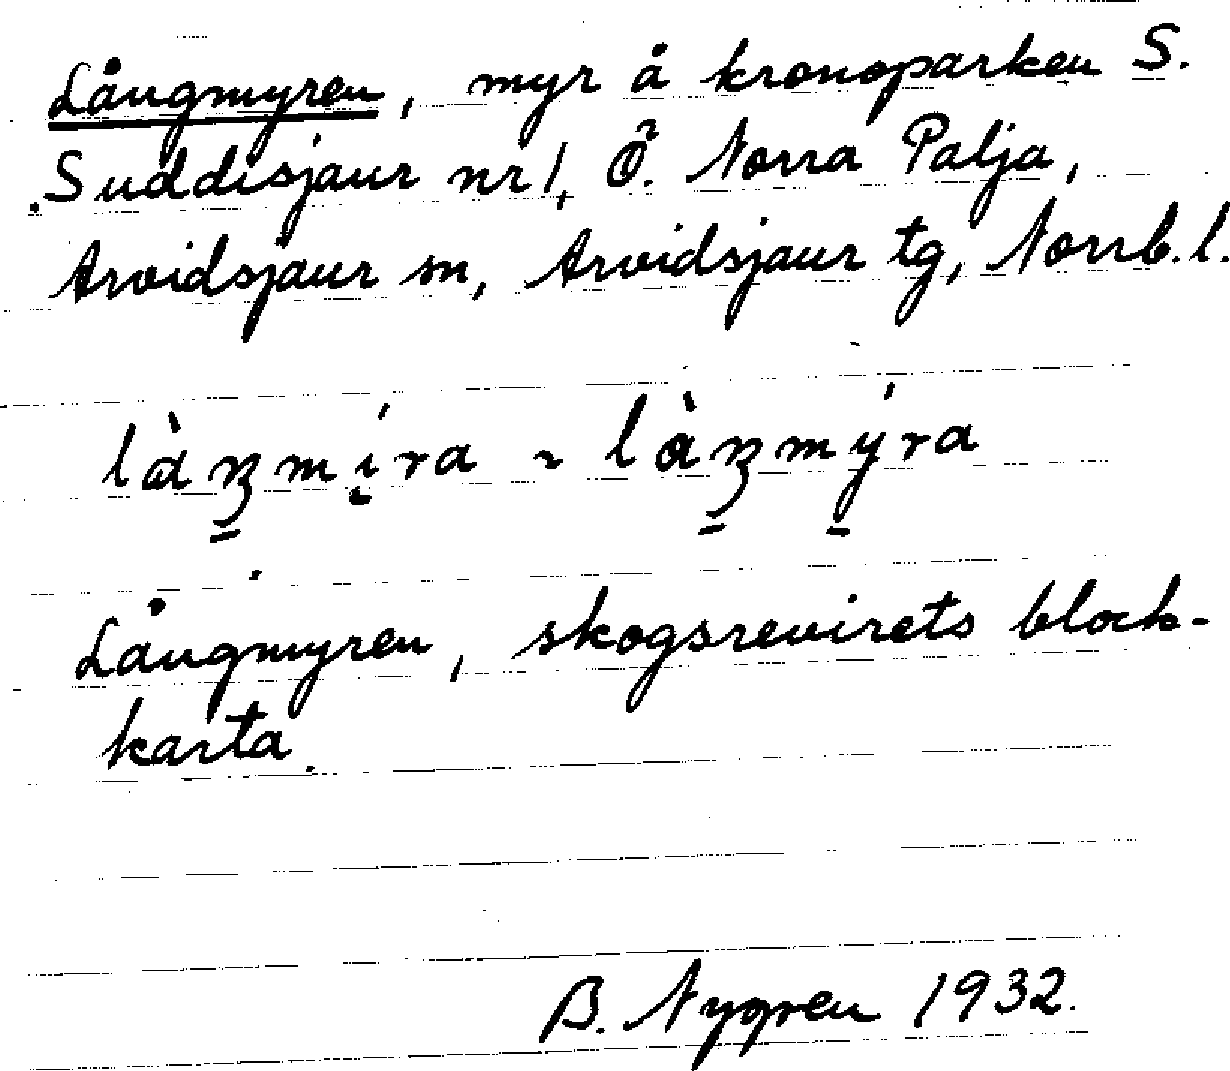 Långmyren, myr å kronoparken S.
Suddisjaur nr 1, Ö. Norra Palja,
Arvidsjaur sn, Arvidsjaur tg, Norrb. l.
làŋmí̜ra ~ làŋmýra
Långmyren, skogsrevirets block-
karta.
B. Nygren 1932.